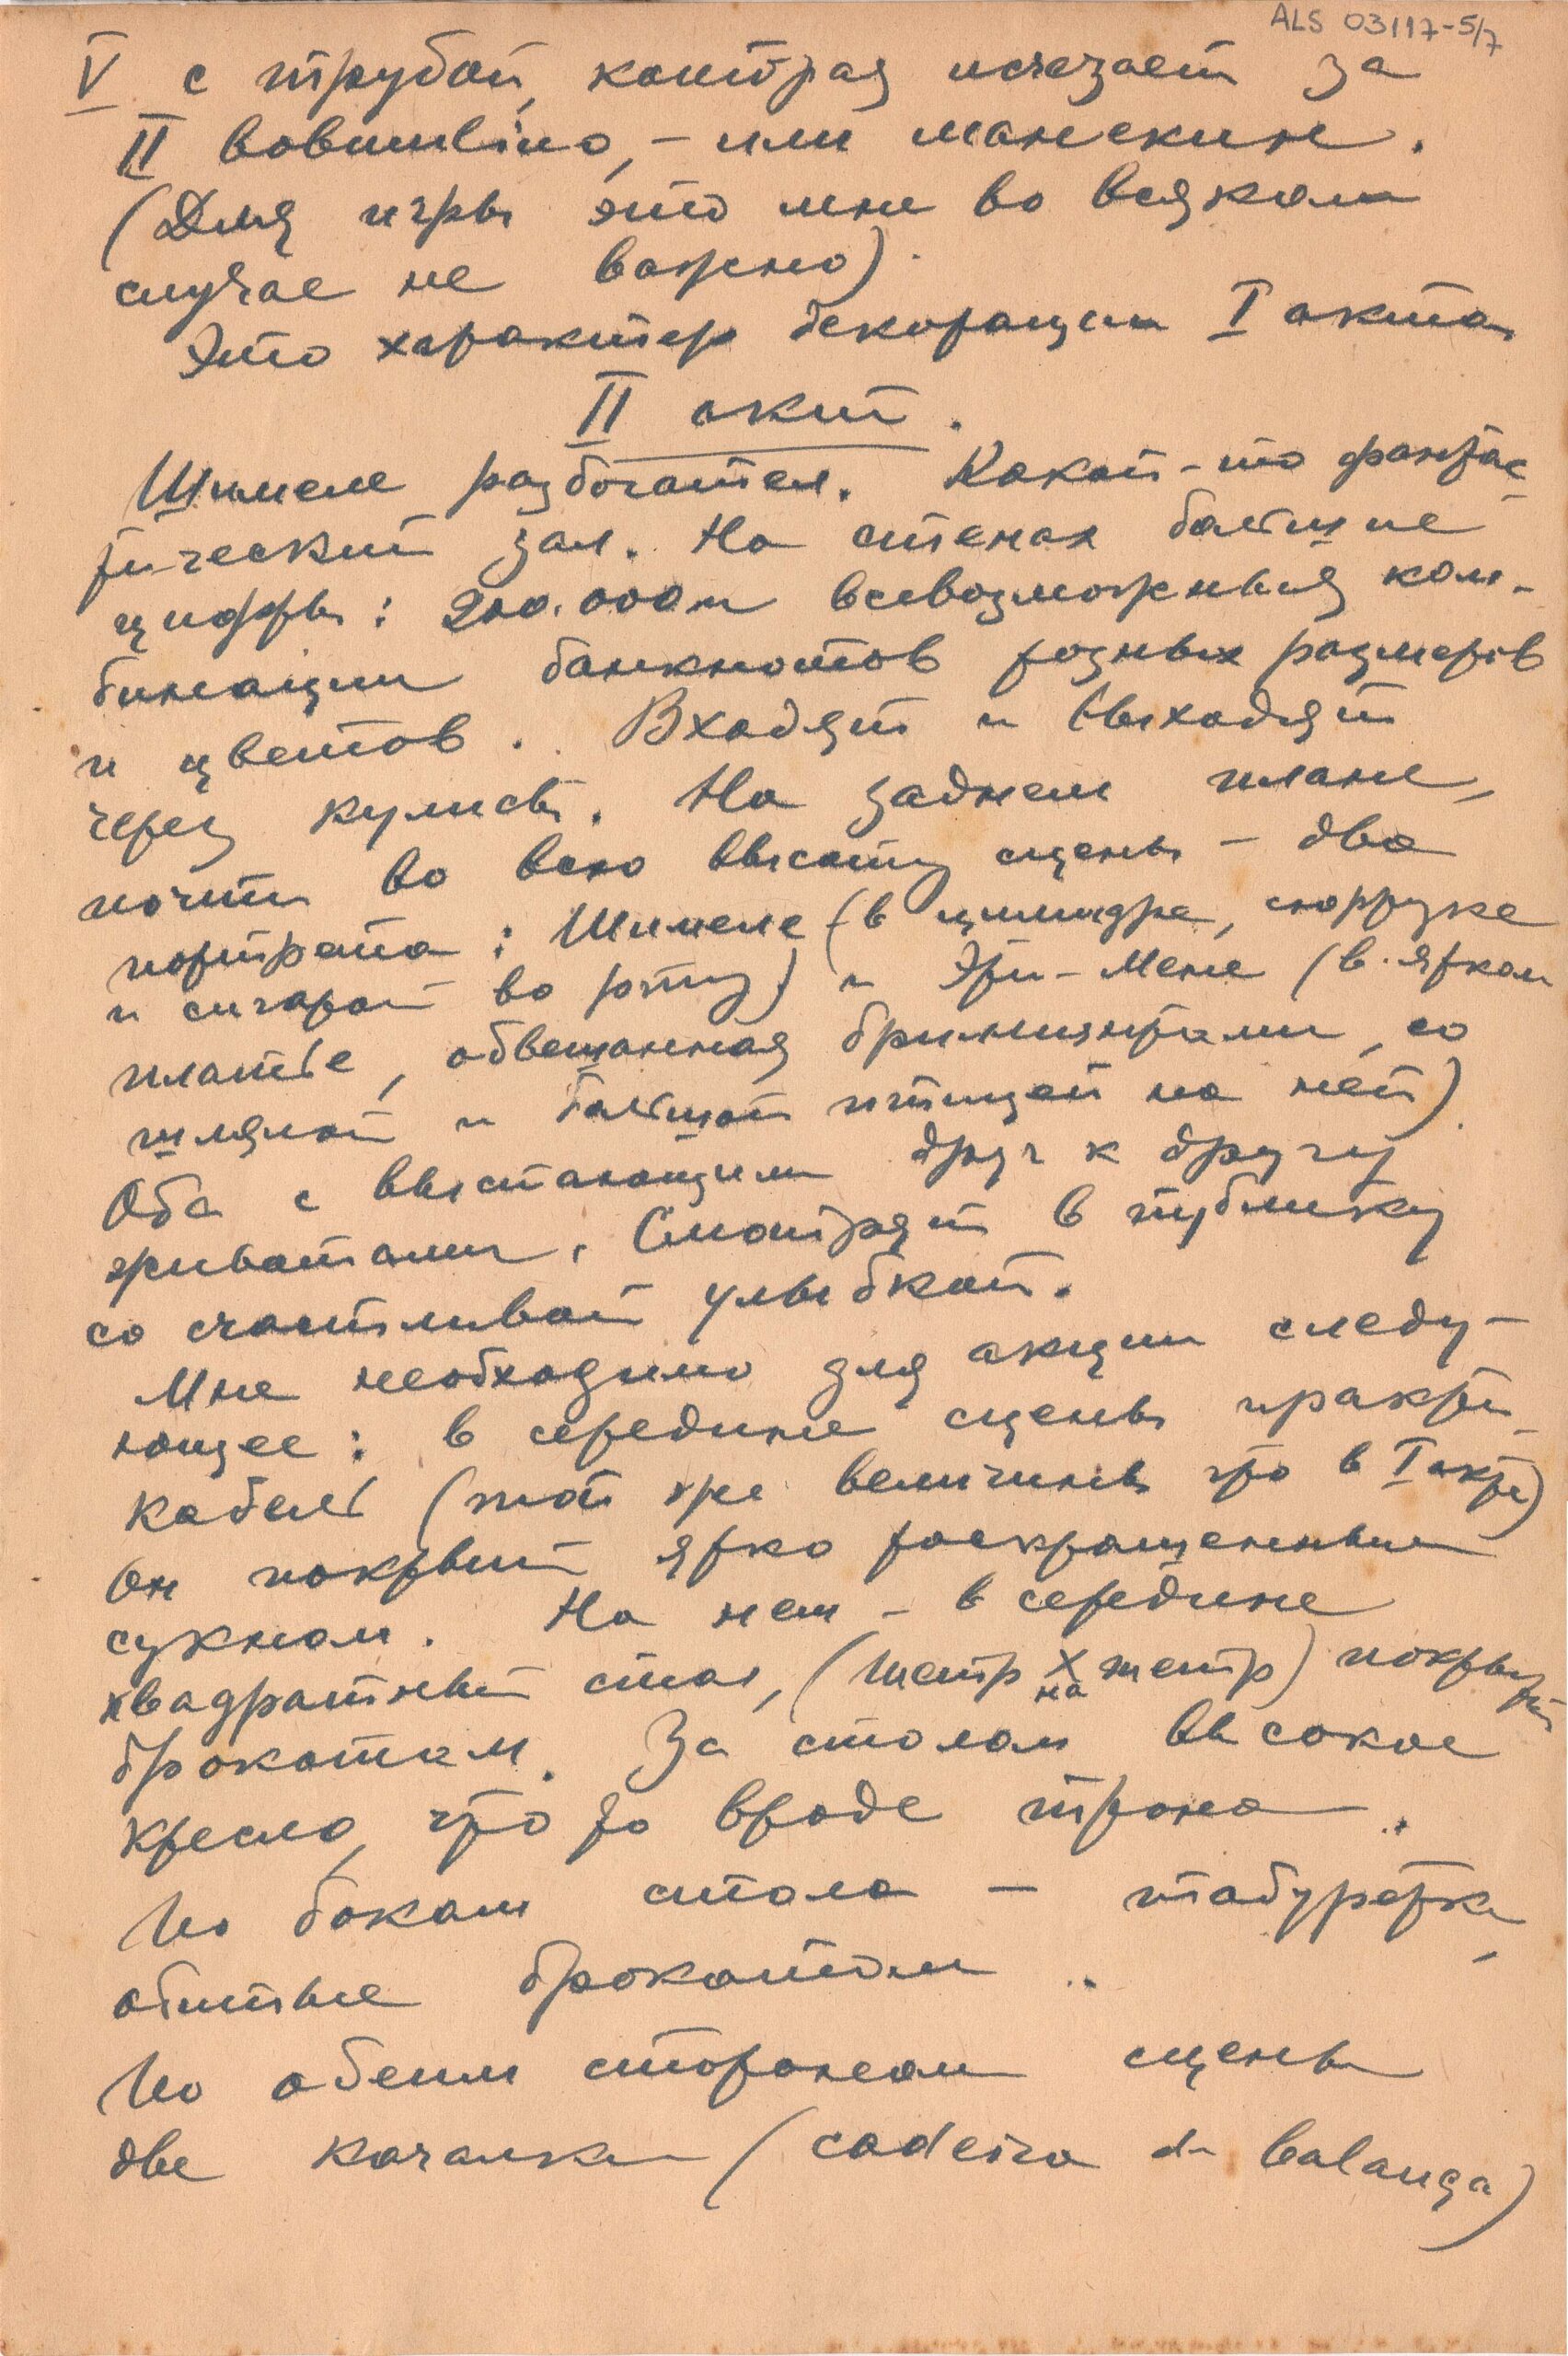 ALS 03117-5/7
V с трубой, которая исчезает за
II – или манекин.
(Для игры это мне во всяком
случае не важно).
Это характер декорации I акта
II акт.
Шимеле разбогател. Какой-то фантас-
тический зал. На стенах большие
цифры: 200.000 и всевозможныя ком-
бинации банкнотов разных размеров
и цветов. Входят и выходят
через кулисы. На заднем плане,
почти во всю высоту сцены – два
портрета: Шимеле (в цилиндре, сюртуке
и сигарой во рту) и Эти-Мене (в ярком
платье, обвешанная бриллиантами, со
шляпой и большой птицей на ней).
Оба с выстающими друг к другу
животами. Смотрят в публику
со счастливой улыбкой.
Мне необходимо для акции следу-
ющее: в середине сцены практи-
кабель (той же величины что в I акте)
Он покрыт ярко раскрашенным
сукном. На нем – в середине
квадратный стол, (метр х на метр) покрытый
брокатом. За столом высокое
кресло, что то вроде трона.
По бокам стола – табуретки,
обитые брокатом.
По обеим сторонам сцены
две качалки (cadeira de balança)